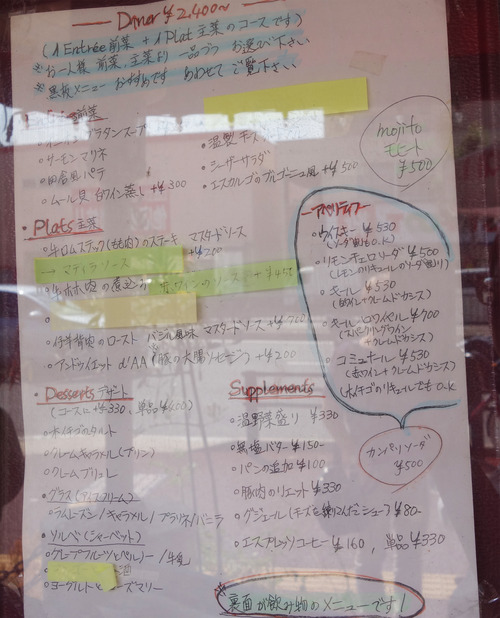 Diner ¥2,400~
(1 Entrée 前菜 + 1 Plat 主菜 のコースです)
※お一人様 前菜、主菜より 一品づつ お選び下さい
※黒板メニュー おすすめです あわせてご覧下さい
前菜
グラタンスープ
・サーモンマリネ
・田舎風パテ
・ムール貝 白ワイン蒸し +¥300
・温製
・シーザーサラダ
・エスカルゴのブルゴーニュ風 +¥500
mojito
モヒート
¥500
・Plats 主菜
・牛ロムステック(もも肉)のステーキ マスタードソース
+¥200
→ マデイラソース
・牛ホホ肉の煮込み 赤ワインのソース +¥
・仔羊背肉のロースト バジル風味 マスタードソース +¥700
・アンドゥイエット d'AA (豚の大腸ソーセージ) +¥200
アペリティフ
・ウイスキー ¥530
(ソーダ割もO.K)
・リモンチェロソーダ ¥500
(レモンのリキュールのソーダ割り)
・キール ¥530
(白ワイン+クレームドカシス)
・キールロワイヤル ¥700
(スパークリングワイン
+クレームドカシス)
・コミュナール ¥530
(赤ワイン+クレームドカシス)
(木イチゴのリキュールでもO.K
カンパリソーダ
¥500
・Desserts デザート
(コースに+¥330, 単品¥600)
・木イチゴのタルト
・クレームキャラメル(プリン)
・クレームブリュレ
・グラス(アイスクリーム)
・ラムレーズン/キャラメル/プラリネ/バニラ
・ソルベ(シャーベット)
・グレープフルーツとペルノー /牛乳
酒
・ヨーグルトと ーズマリー
Supplements
・温野菜盛り ¥330
・無塩バター ¥150-
・パンの追加 ¥100
・豚肉のリエット ¥330
・グジェール(チーズを練りこんだシュー) ¥80-
・エスプレッソコーヒー ¥160, 単品¥330
※裏面が飲み物のメニューです!